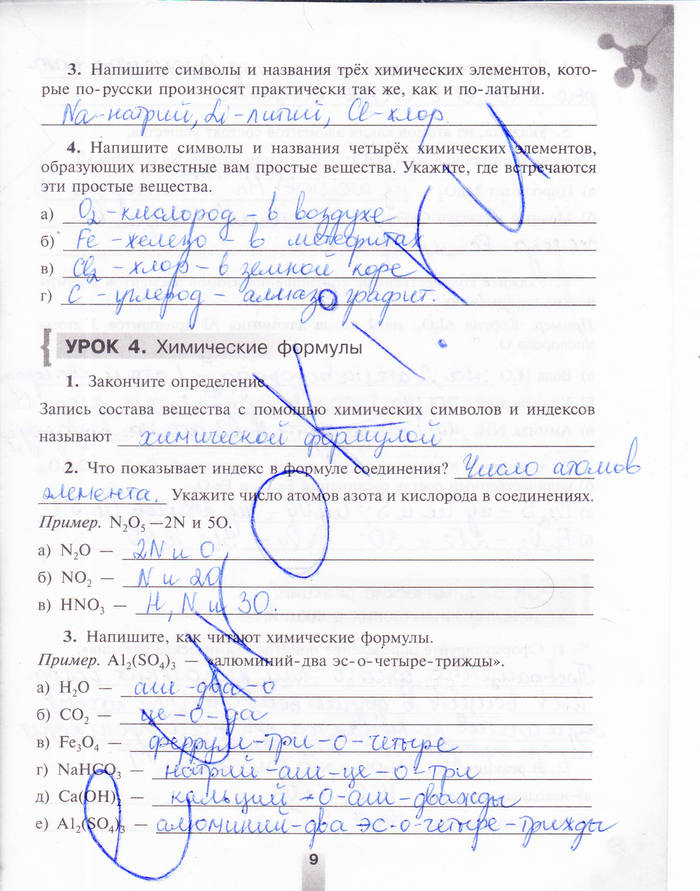 3. Напишите символы и названия трёх химических элементов, кото-
рые по-русски произносят практически так же, как и по-латыни.
Na-натрий, Li-литий, Cl-хлор.
4. Напишите символы и названия четырёх химических элементов,
образующих известные вам простые вещества. Укажите, где встречаются
эти простые вещества.
а) O₂-кислород-в воздухе
б) Fe-железо-в метеоритах
в) Cl₂-хлор-в земной коре
г) C-углерод-алмаз, графит.
УРОК 4. Химические формулы
1. Закончите определение.
Запись состава вещества с помощью химических символов и индексов
называют химической формулой
2. Что показывает индекс в формуле соединения? Число атомов
элемента. Укажите число атомов азота и кислорода в соединениях.
Пример. N₂O₅—2N и 5O.
а) N₂O — 2N и O
б) NO₂ — N и 2O
в) HNO₃ — H, N и 3O.
3. Напишите, как читают химические формулы.
Пример. Al₂(SO₄)₃ — «алюминий-два эс-о-четыре-трижды».
а) H₂O — аш-два-о
б) CO₂ — це-о-два
в) Fe₃O₄ — феррум-три-о-четыре
г) NaHCO₃ — натрий-аш-це-о-три
д) Ca(OH)₂ — кальций-о-аш-дважды
е) Al₂(SO₄)₃ — алюминий-два эс-о-четыре-трижды
9